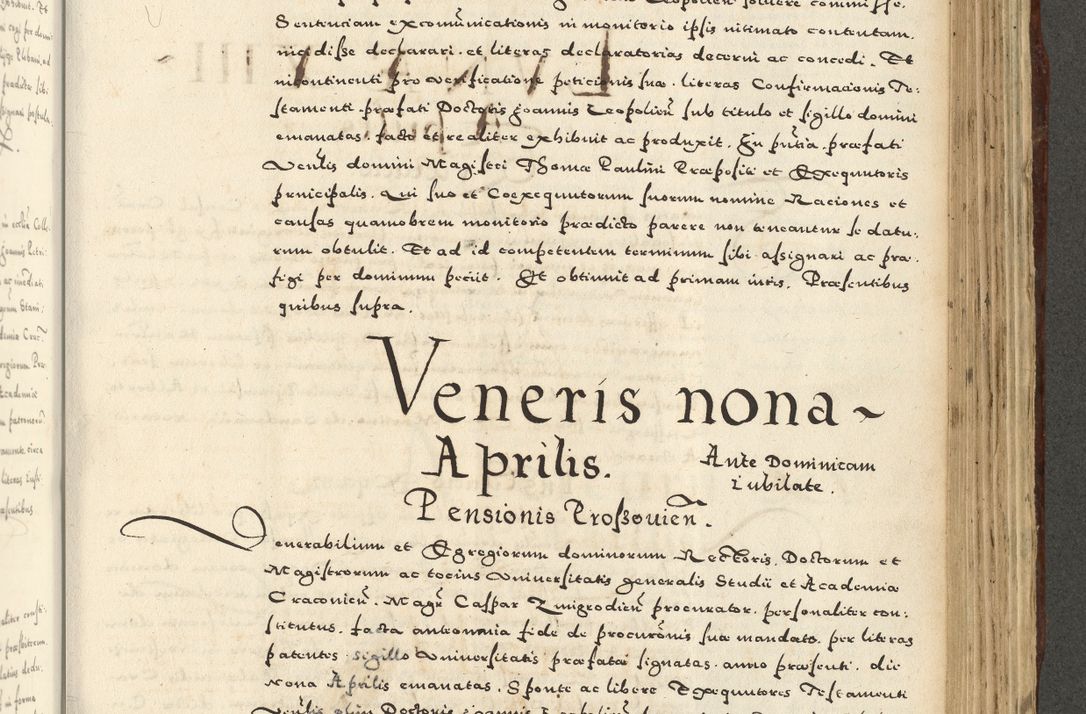 Sentenciam excomunicationis in monitorio ipsis intimato contentam.
incidisse declarari. et literas declaratorias decerni ac concedi. Et
incontinenti pro verificatione peticionis suæ. literas Confirmacionis Te:
stamenti præfati Doctoris Joannis Leopolien̄ sub titulo et sigillo domini
emanatas. facto et realiter exhibuit ac produxit. In pn̄tia præfati
Ven̄lis domini Magistri Thomæ Paulini Præpositi et Exequutoris
principalis. Qui suo et Coexequutorum suorum nomine Raciones et
causas quamobrem monitorio prædicto parere non teneantur se datu:
rum obtulit. Et ad id competentem terminum sibi assignari ac præ:
figi per dominum peciit. Et obtinuit ad primam iuris. Præsentibus
quibus supra.
Veneris nona ~
Aprilis.
Ante Dominicam
Iubilate.
Pensionis Prossovien̄.
Venerabilium et Egregiorum dominorum Rectoris, Doctorum et
Magistrorum ac tocius Universitatis generalis Studii et Academiæ
Cracovien̄. Magr̄ Caspar Zmigrodien̄ procurator. personaliter con:
stitutus. facta anteomnia fide de procurōnis suæ mandato. per literas
patentes sigillo Universitatis præfatæ signatas. anno præsenti. die
nona Aprilis emanatas. Sponte ac libere Exequutores Testamenti